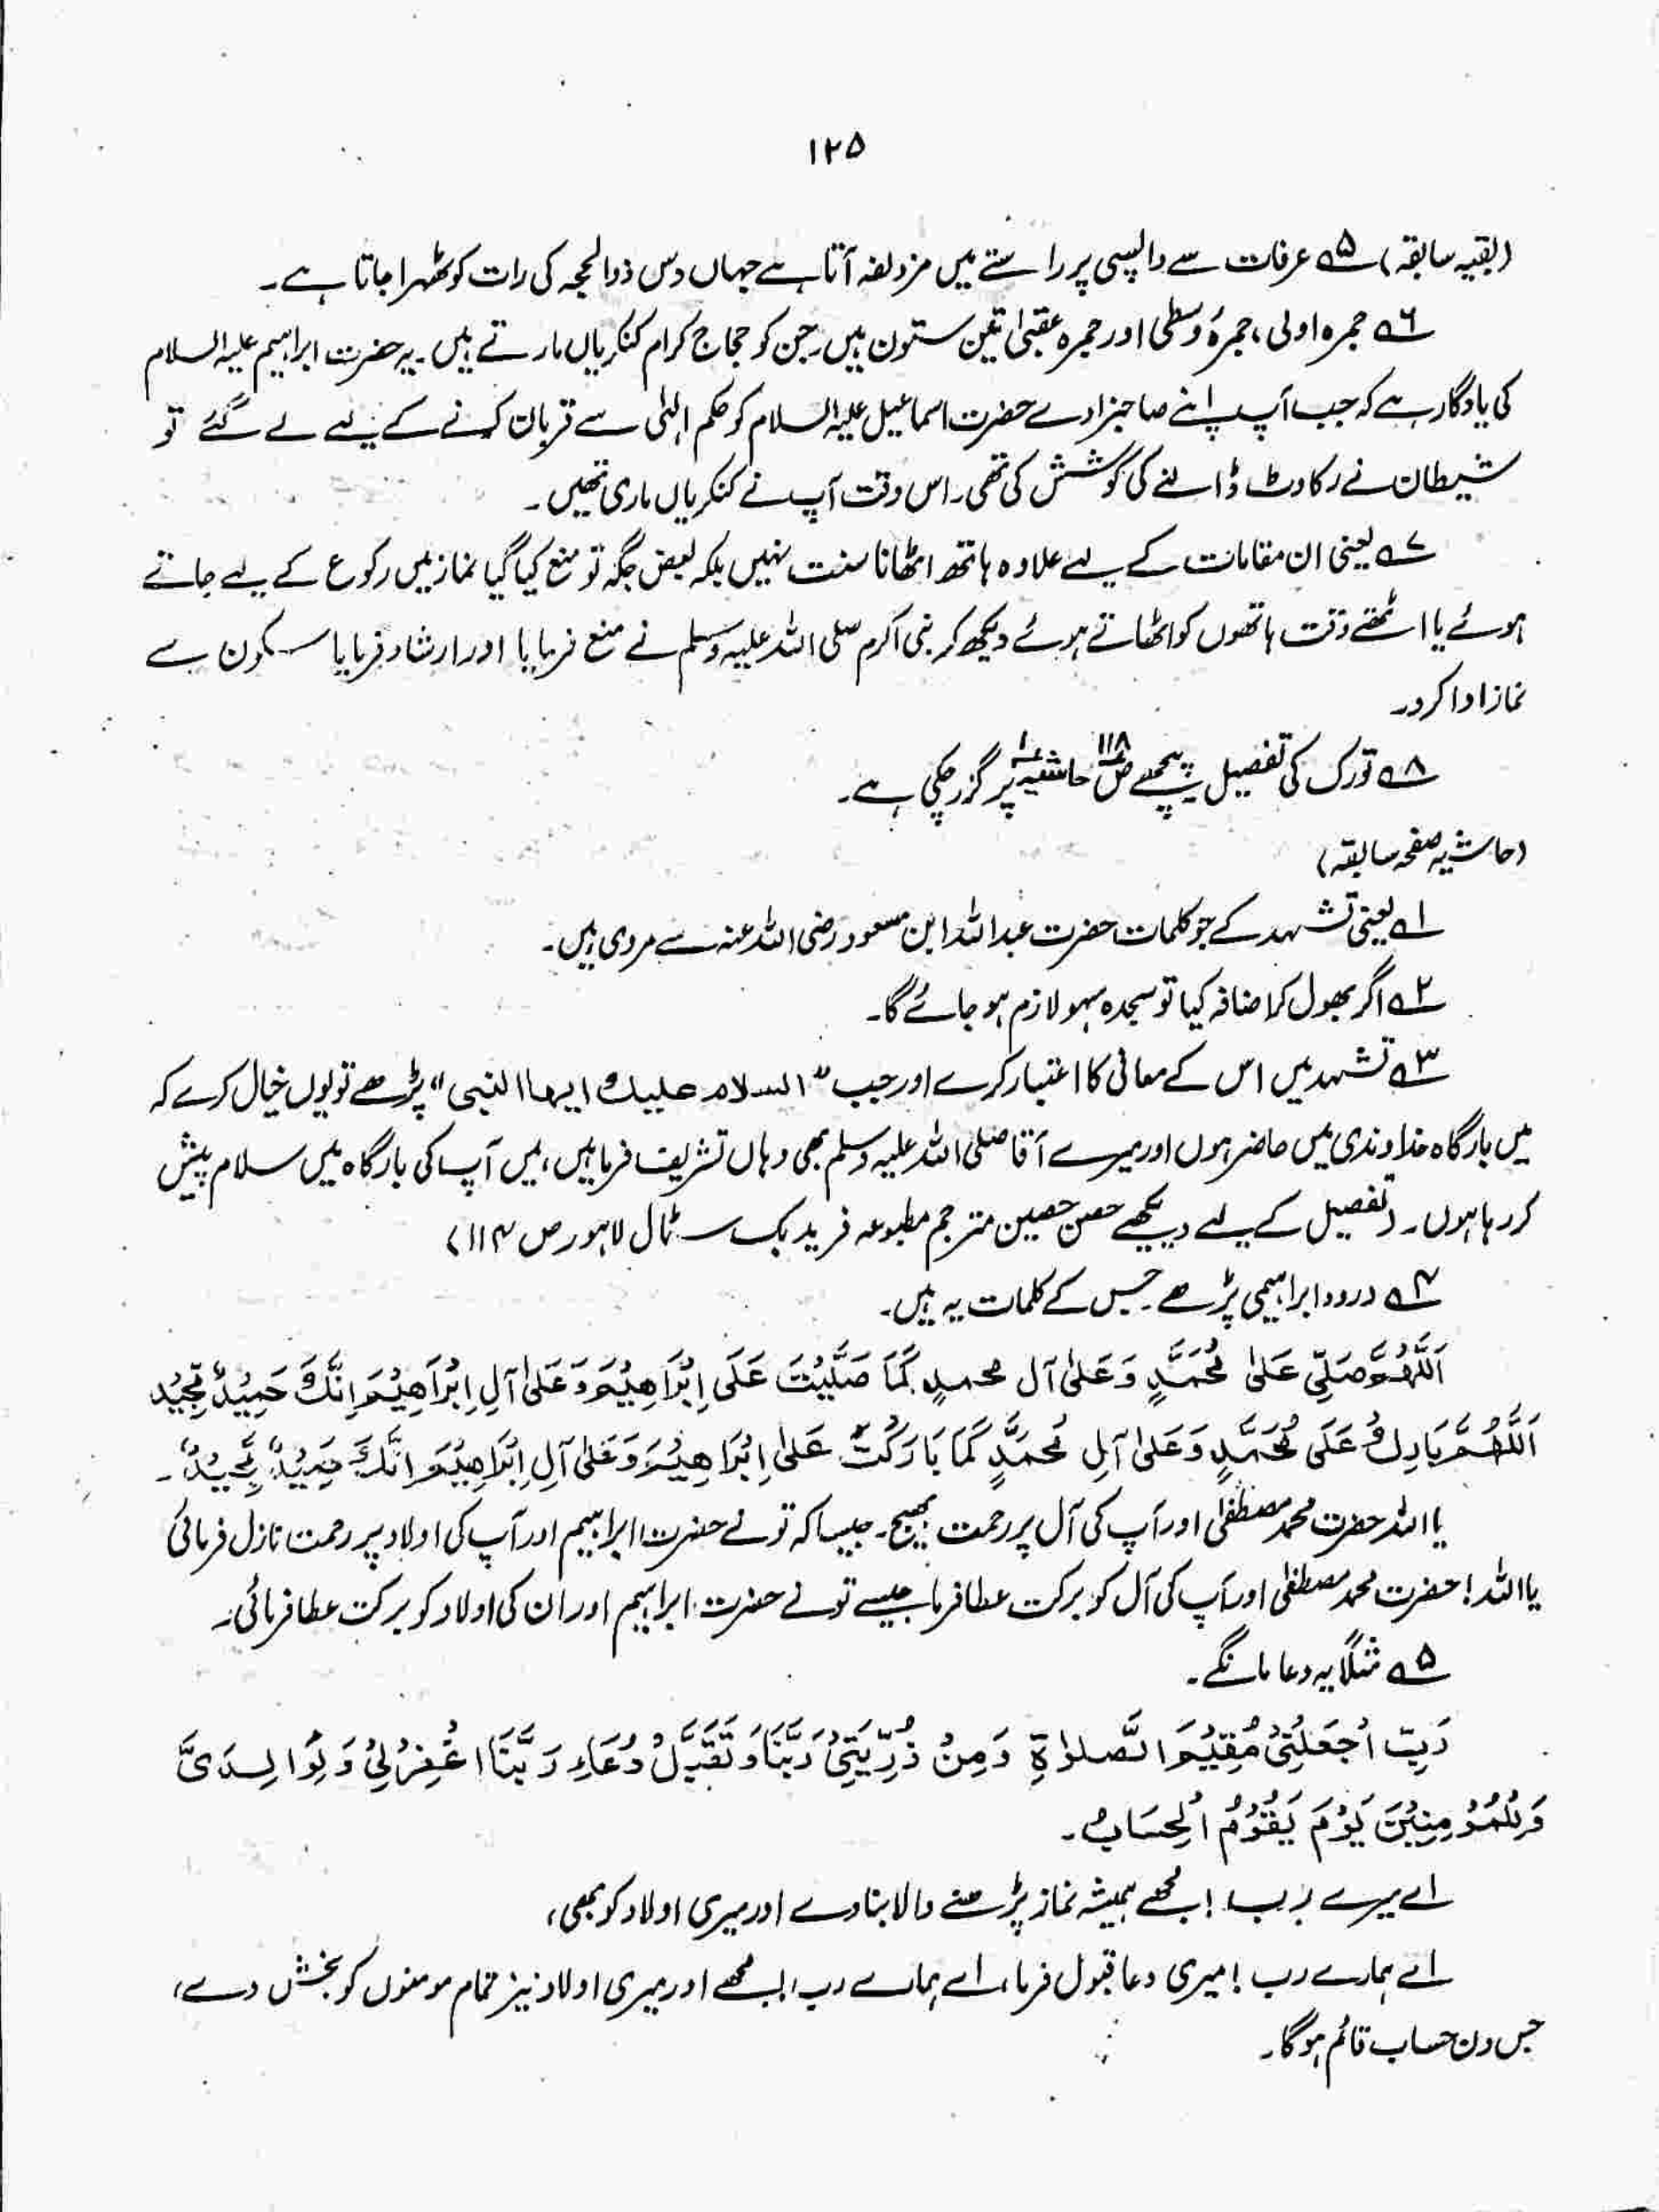 ۱۲۵
(بقیہ سابقہ) ۵؎ عرفات سے واپسی پر راستے میں مزدلفہ آتا ہے جہاں دس ذوالحجہ کی رات کو ٹھہرا جاتا ہے۔
۶؎ جمرہ اولی، جمرۂ وسطی اور جمرہ عقبیٰ تین ستون ہیں جن کو حجاج کرام کنکریاں مارتے ہیں۔ یہ حضرت ابراہیم علیہ السلام
کی یادگار ہے کہ جب آپ اپنے صاحبزادے حضرت اسماعیل علیہ السلام کو حکم الٰہی سے قربان کرنے کے لیے لے گئے تو
شیطان نے رکاوٹ ڈالنے کی کوشش کی تھی۔ اس وقت آپ نے کنکریاں ماری تھیں۔
۷؎ یعنی ان مقامات کے لیے علاوہ ہاتھ اٹھانا سنت نہیں بلکہ بعض جگہ تو منع کیا گیا نماز میں رکوع کے لیے جاتے
ہوئے یا اٹھتے وقت ہاتھوں کو اٹھاتے ہوئے دیکھ کر نبی اکرم صلی اللہ علیہ وسلم نے منع فرمایا اور ارشاد فرمایا سکون سے
نماز ادا کرو۔
۸؎ تورک کی تفصیل پیچھے ص۱۱۸ حاشیہ ۱ پر گزر چکی ہے۔
(حاشیہ صفحہ سابقہ)
۱؎ یعنی تشہد کے جو کلمات حضرت عبداللہ ابن مسعود رضی اللہ عنہ سے مروی ہیں۔
۲؎ اگر بھول کر اضافہ کیا تو سجدہ سہو لازم ہو جائے گا۔
۳؎ تشہد میں اس کے معانی کا اعتبار کرے اور جب "السلام علیك ایها النبی" پڑھے تو یوں خیال کرے کہ
میں بارگاہ خداوندی میں حاضر ہوں اور میرے آقا صلی اللہ علیہ وسلم بھی وہاں تشریف فرما ہیں، میں آپ کی بارگاہ میں سلام پیش
کر رہا ہوں۔ (تفصیل کے لیے دیکھیے حصن حصین مترجم مطبوعہ فرید بک سٹال لاہور ص ۱۱۴)
۴؎ درود ابراہیمی پڑھے جس کے کلمات یہ ہیں۔
اَللّٰهُمَّ صَلِّی عَلیٰ مُحَمَّدٍ وَعَلیٰ آل محمدٍ كَمَا صَلَّیْتَ عَلَی اِبْرَاهِیْمَ وَعَلیٰ آلِ اِبْرَاهِیْمَ اِنَّكَ حَمِیْدٌ مَّجِیْد
اَللّٰهُمَّ بَارِكْ عَلَی مُحَمَّدٍ وَعَلیٰ آلِ مُحَمَّدٍ كَمَا بَارَكْتَ عَلیٰ اِبْرَاهِیْمَ وَعَلیٰ آلِ اِبْرَاهِیْمَ انَّكَ حَمِیْدٌ مَّجِیْدٌ۔
یا اللہ حضرت محمد مصطفیٰ اور آپ کی آل پر رحمت بھیج۔ جیسا کہ تونے حضرت ابراہیم اور آپ کی اولاد پر رحمت نازل فرمائی
یا اللہ! حضرت محمد مصطفیٰ اور آپ کی آل کو برکت عطا فرما جیسے تونے حضرت ابراہیم اور ان کی اولاد کو برکت عطا فرمائی۔
۵؎ مثلاً یہ دعا مانگے۔
رَبِّ اجْعَلْنِیْ مُقِیْمَ الصَّلوٰۃِ وَمِنْ ذُرِّیَتِیْ رَبَّنَا وَتَقَبَّلْ دُعَاءِ رَبَّنَا اغْفِرْلِیْ وَلِوَالِدَیَّ
وَلِلْمُؤْمِنِیْنَ یَوْمَ یَقُوْمُ الْحِسَابُ۔
اے میرے رب! مجھے ہمیشہ نماز پڑھنے والا بنا دے اور میری اولاد کو بھی،
اے ہمارے رب! میری دعا قبول فرما، اے ہمارے رب، مجھے اور میری اولاد نیز تمام مومنوں کو بخش دے،
جس دن حساب قائم ہوگا۔